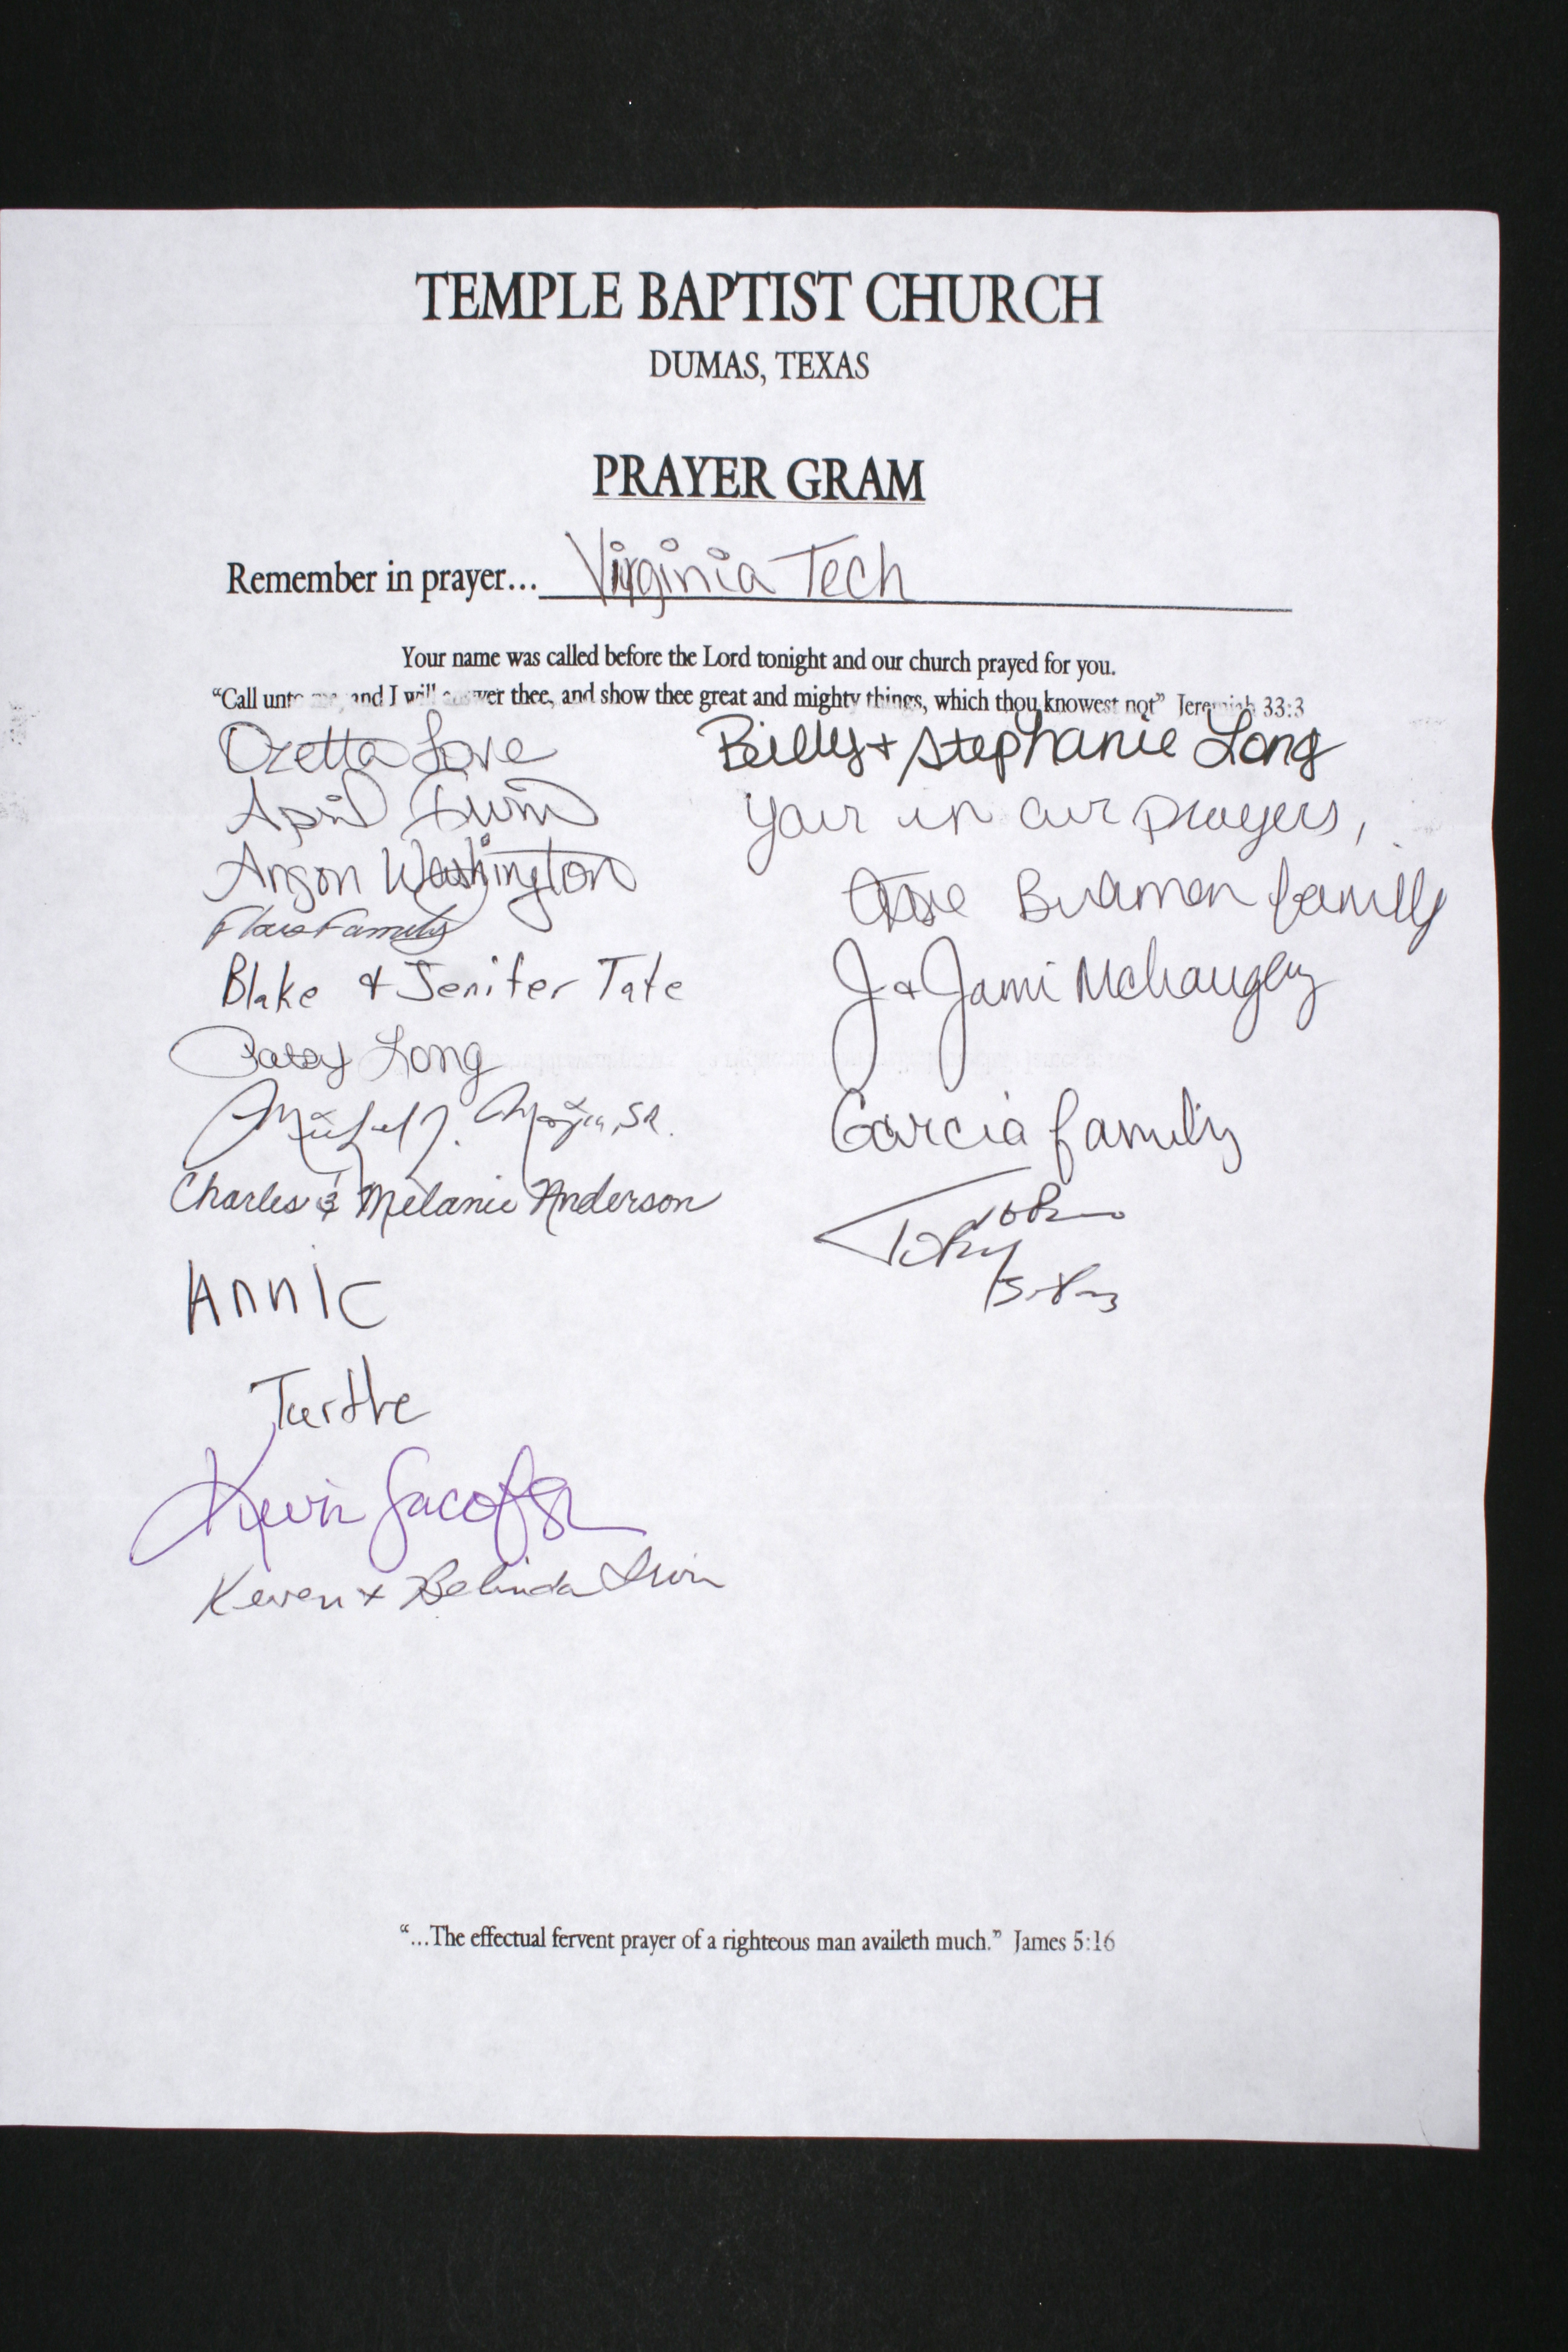 TEMPLE BAPTIST CHURCH
DUMAS, TEXAS
PRAYER GRAM
Remember in prayer... Virginia Tech
Your name was called before the Lord tonight and our church prayed for you.
“Call unto me, and I will answer thee, and show thee great and mighty things, which thou knowest not” Jeremiah 33:3
Ozetta Love
April Irwin
Angon Washington
Family
Blake & Jenifer Tate
Patsy Long
Michael J. Sr.
Charles & Melanie Anderson
Annie
Turtle
Kevin
Keven + Belinda Irwin
Billy + Stephanie Long
Your in our prayers,
family
J & Jami
Garcia family
Toby
“...The effectual fervent prayer of a righteous man availeth much.” James 5:16